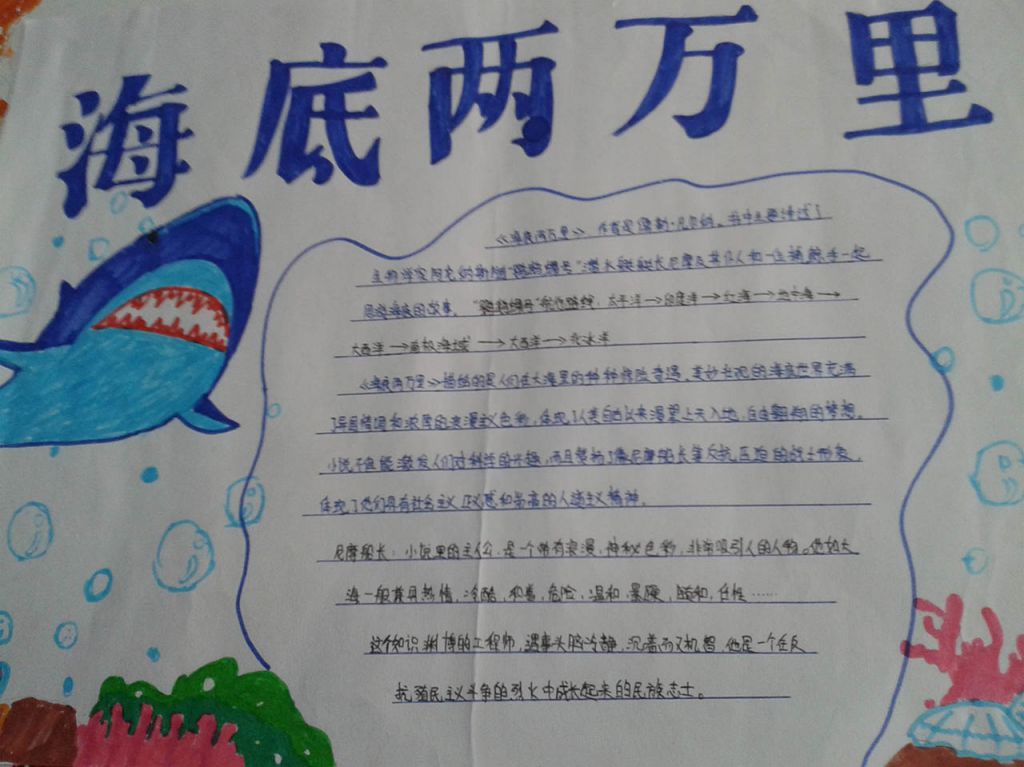 海底两万里
《海底两万里》作者是儒勒·凡尔纳。书中主要讲述了
生物学家阿龙纳斯随"鹦鹉螺号"潜水艇艇长尼摩及其仆人和一位捕鲸手一起
周游海底的故事。"鹦鹉螺号"航行路线:太平洋→印度洋→红海→地中海→
大西洋→南极海域→大西洋→北冰洋
《海底两万里》描绘的是人们在大海里的种种惊险奇遇。美妙壮观的海底世界充满
了异国情调和浓厚的浪漫主义色彩,体现了人类自古以来渴望上天入地、自由翱翔的梦想。
小说不但能激发人们对科学的兴趣,而且赞扬了像尼摩船长等反抗压迫的战士形象,
体现了他们具有社会主义正义感和崇高的人道主义精神。
尼摩船长:小说里的主人公,是一个带有浪漫、神秘色彩,非常吸引人的人物。他如大
海一般兼具热情,冷酷,和善,危险,温和,暴戾,随和,任性……
这个知识渊博的工程师,遇事头脑冷静,沉着而又机智,他是一个在反
抗殖民主义斗争的烈火中成长起来的民族志士。